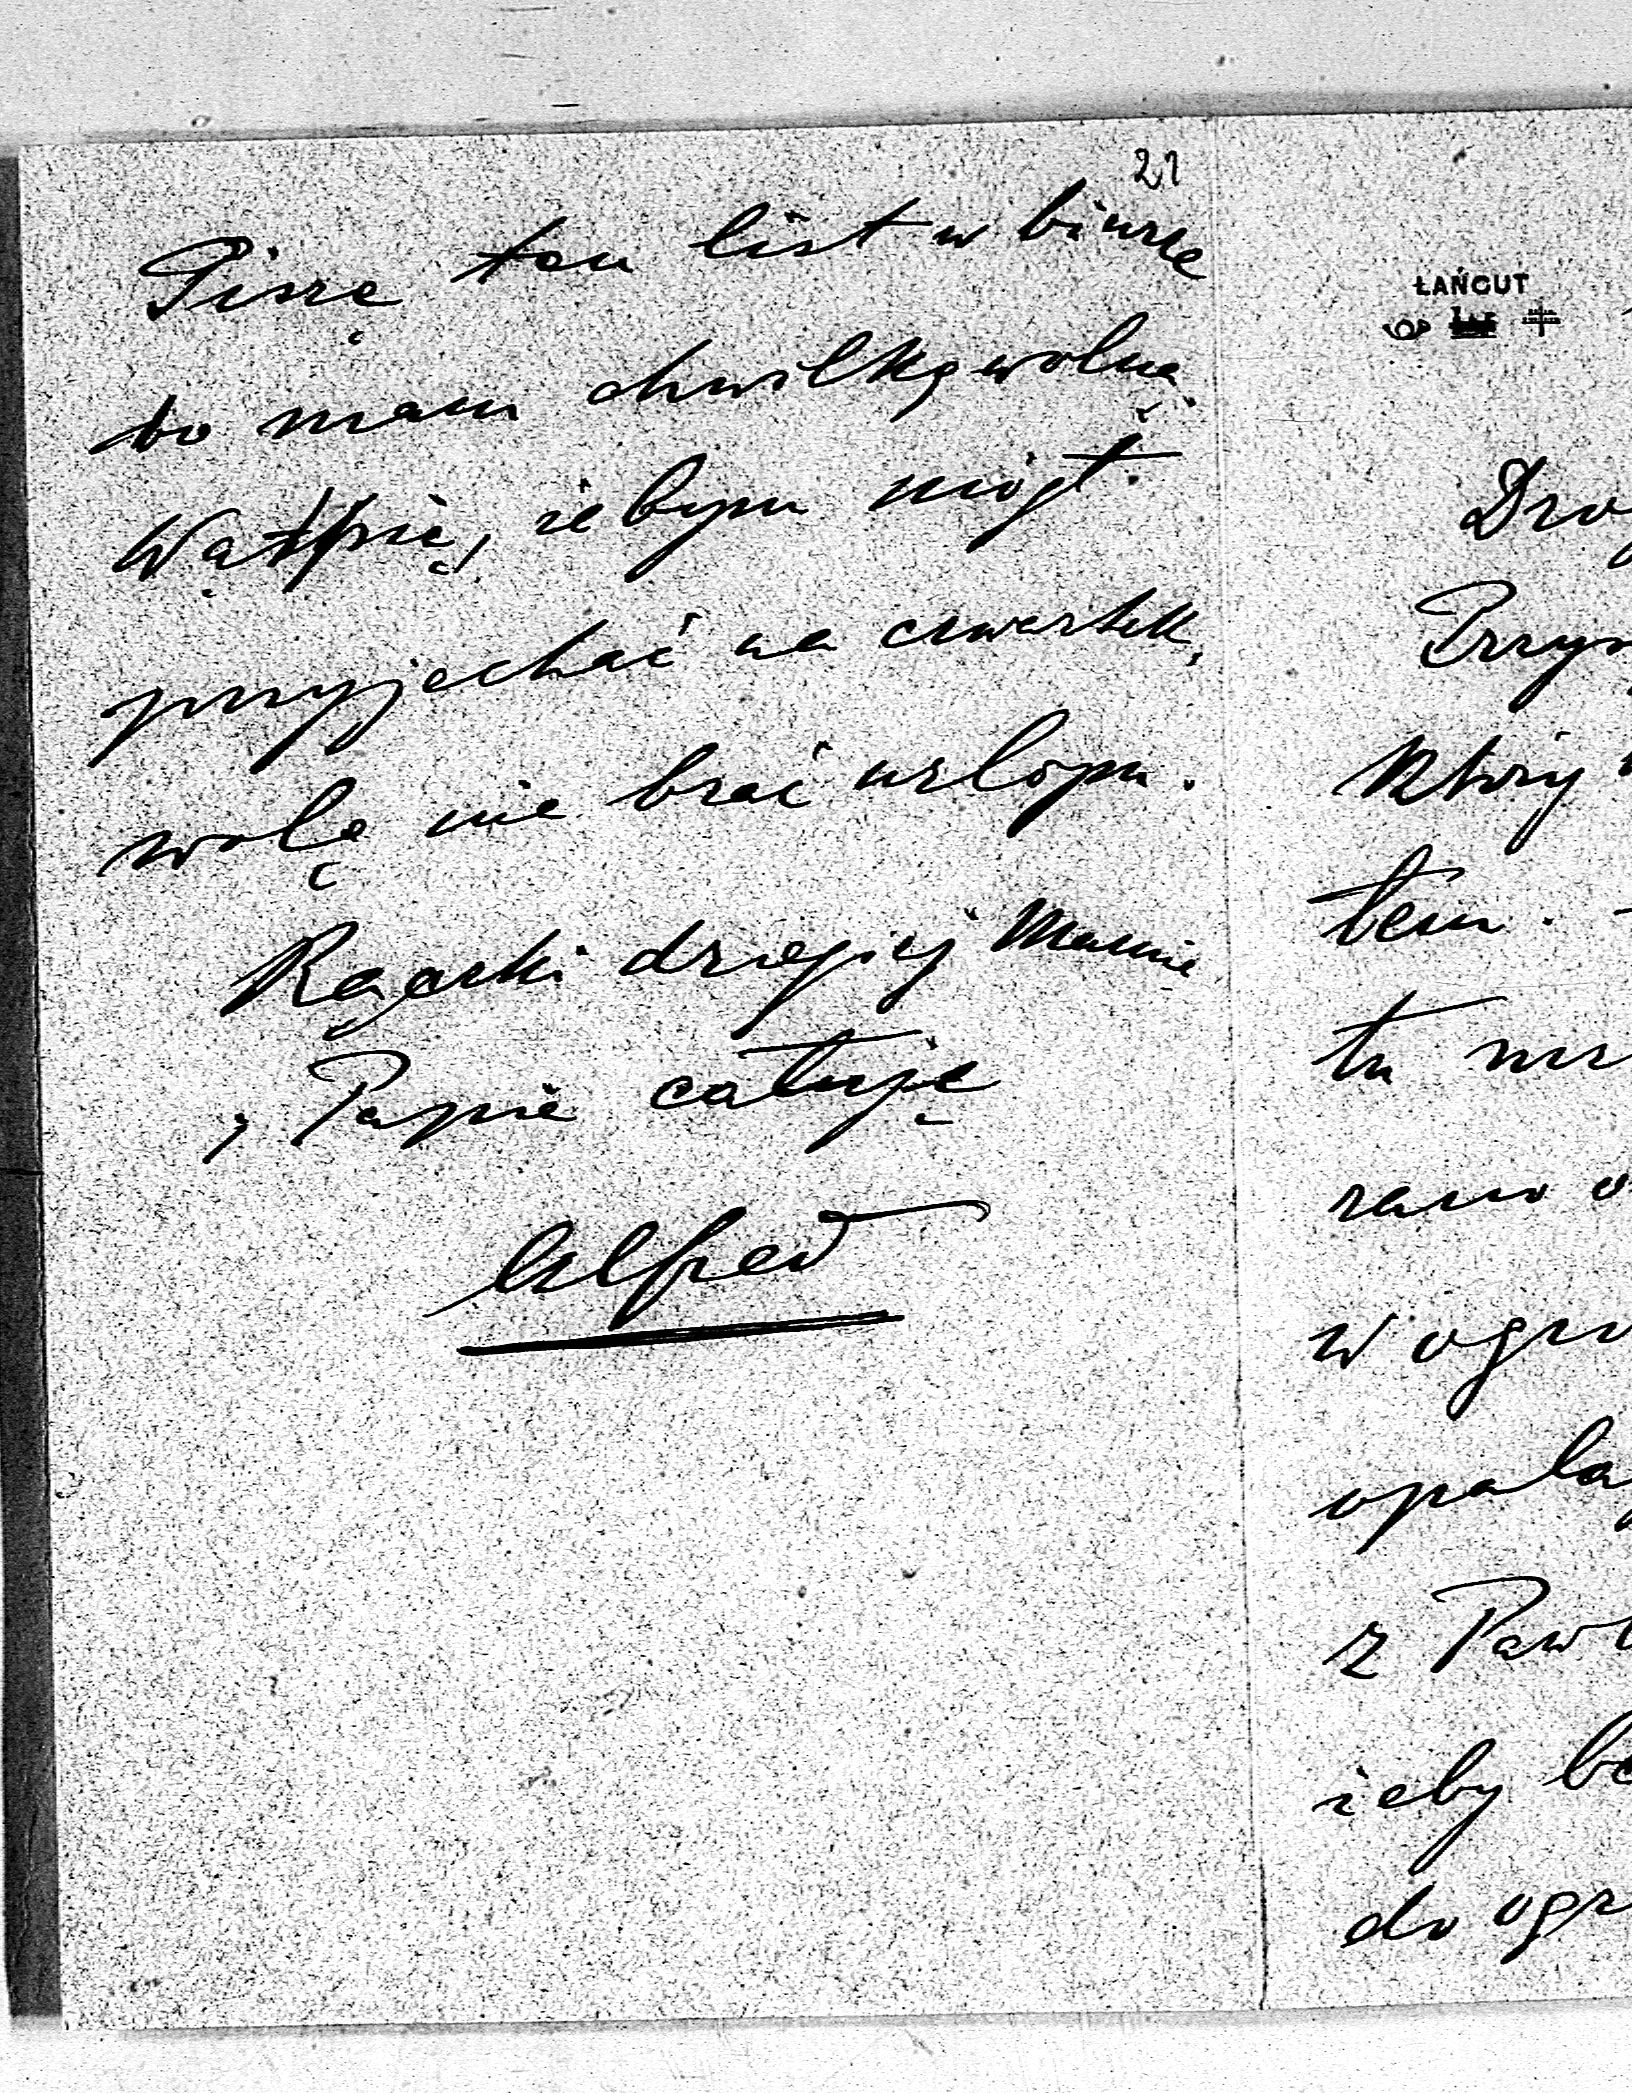 21
Piszę ten list w biurze
bo mam chwilkę wolną.
Wątpię, żebym mógł
przyjechać na czwartek,
wolę nie brać urlopu.
Rączki drogiej Mamie
i Papie całuję
Alfred
ŁAŃCUT
Dro
Przy
który
tem.
tu
rano
w ogro
opala
z Paw
żeby
do ogr